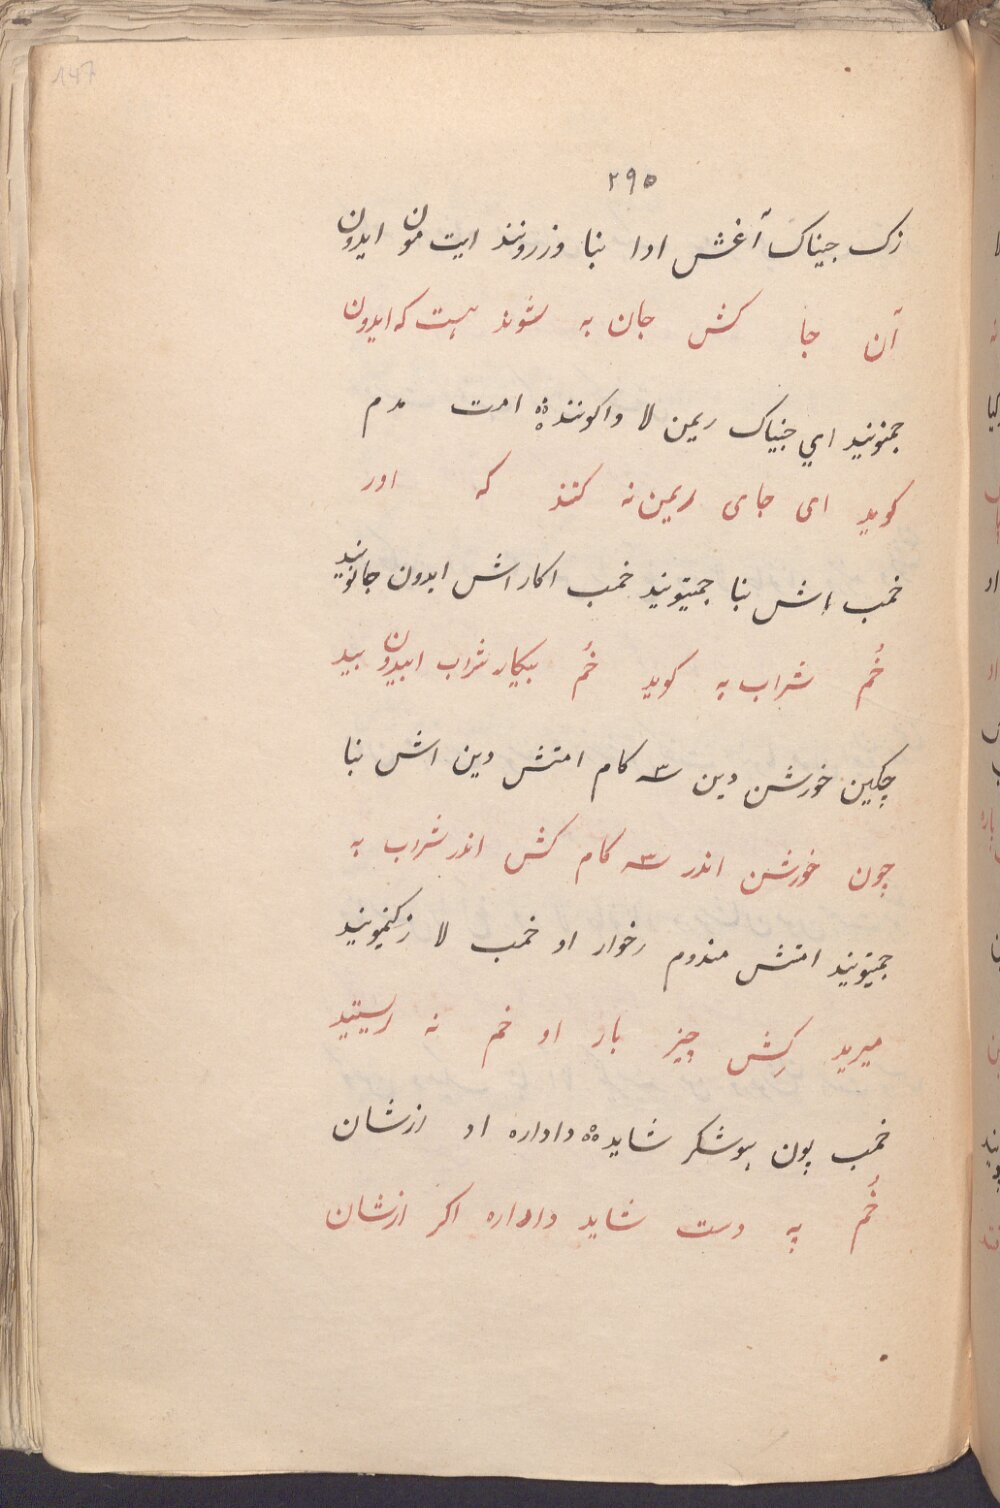 147
۲۹۵
زک جیناک آغش ادا بنا وزرونند ایت مون ایدون
آن جا کش جان به شوند هست که ایدون
جمنونید ای جنیاک ریمن لا واکونند امت مدم
کوید ای جای ریمن نه کنند که اور
خمب اش بنا جمیتونید خمب اکار اش ایدون جانونید
خُم شراب به کوید خُم بیکار شراب ایدون بید
چکین خورشن دین سه کام امتش دین اش بنا
چون خورشن اندر سه کام کش اندر شراب به
جمیتونید امتش مندوم رخوار او خمب لا زکنمونید
میرید کِش چیز بار او خم نه رسیتید
خمب پون یوشکر شاید داداره او ازشان
خُم په دست شاید داداره اکر ازشان